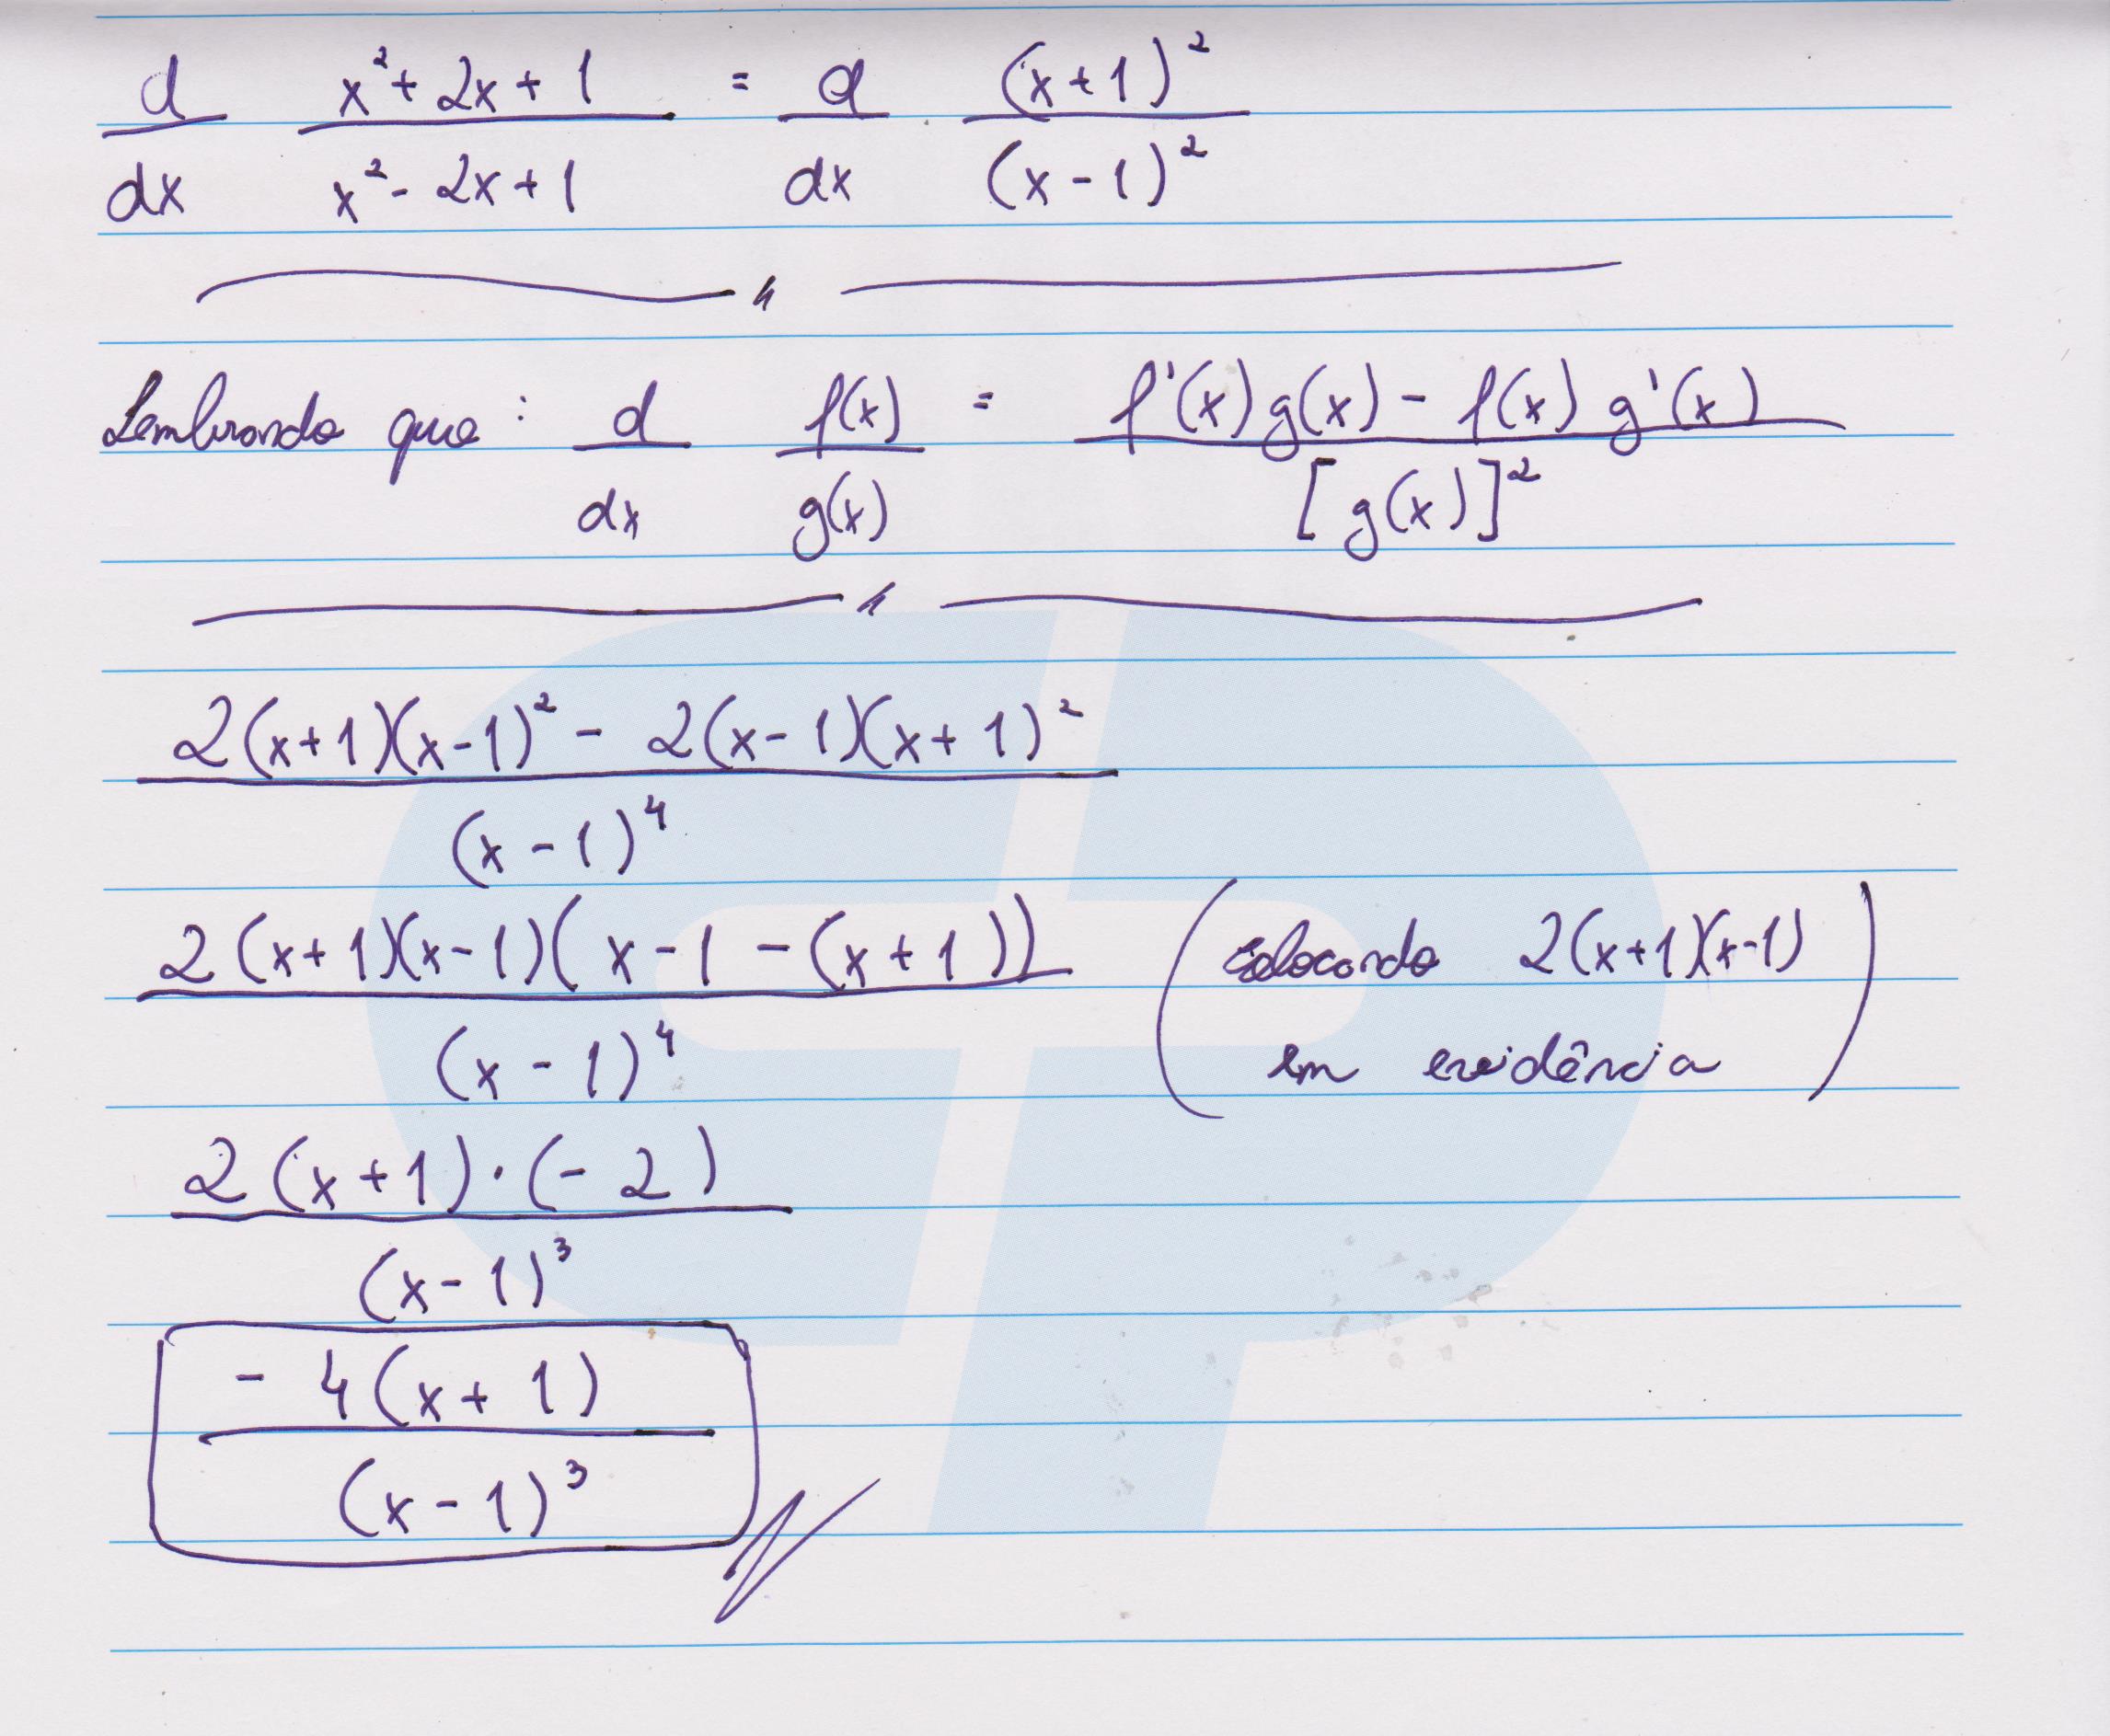 d/dx (x² + 2x + 1)/(x² - 2x + 1) = d/dx (x + 1)²/(x - 1)²
Lembrando que : d/dx f(x)/g(x) = (f'(x) g(x) - f(x) g'(x))/[g(x)]²
(2(x+1)(x-1)² - 2(x-1)(x+1)²)/(x - 1)⁴
(2(x+1)(x-1)(x-1 - (x+1)))/(x - 1)⁴ (colocando 2(x+1)(x-1)
em evidência)
(2(x+1)·(-2))/(x-1)³
(-4(x+1))/(x-1)³